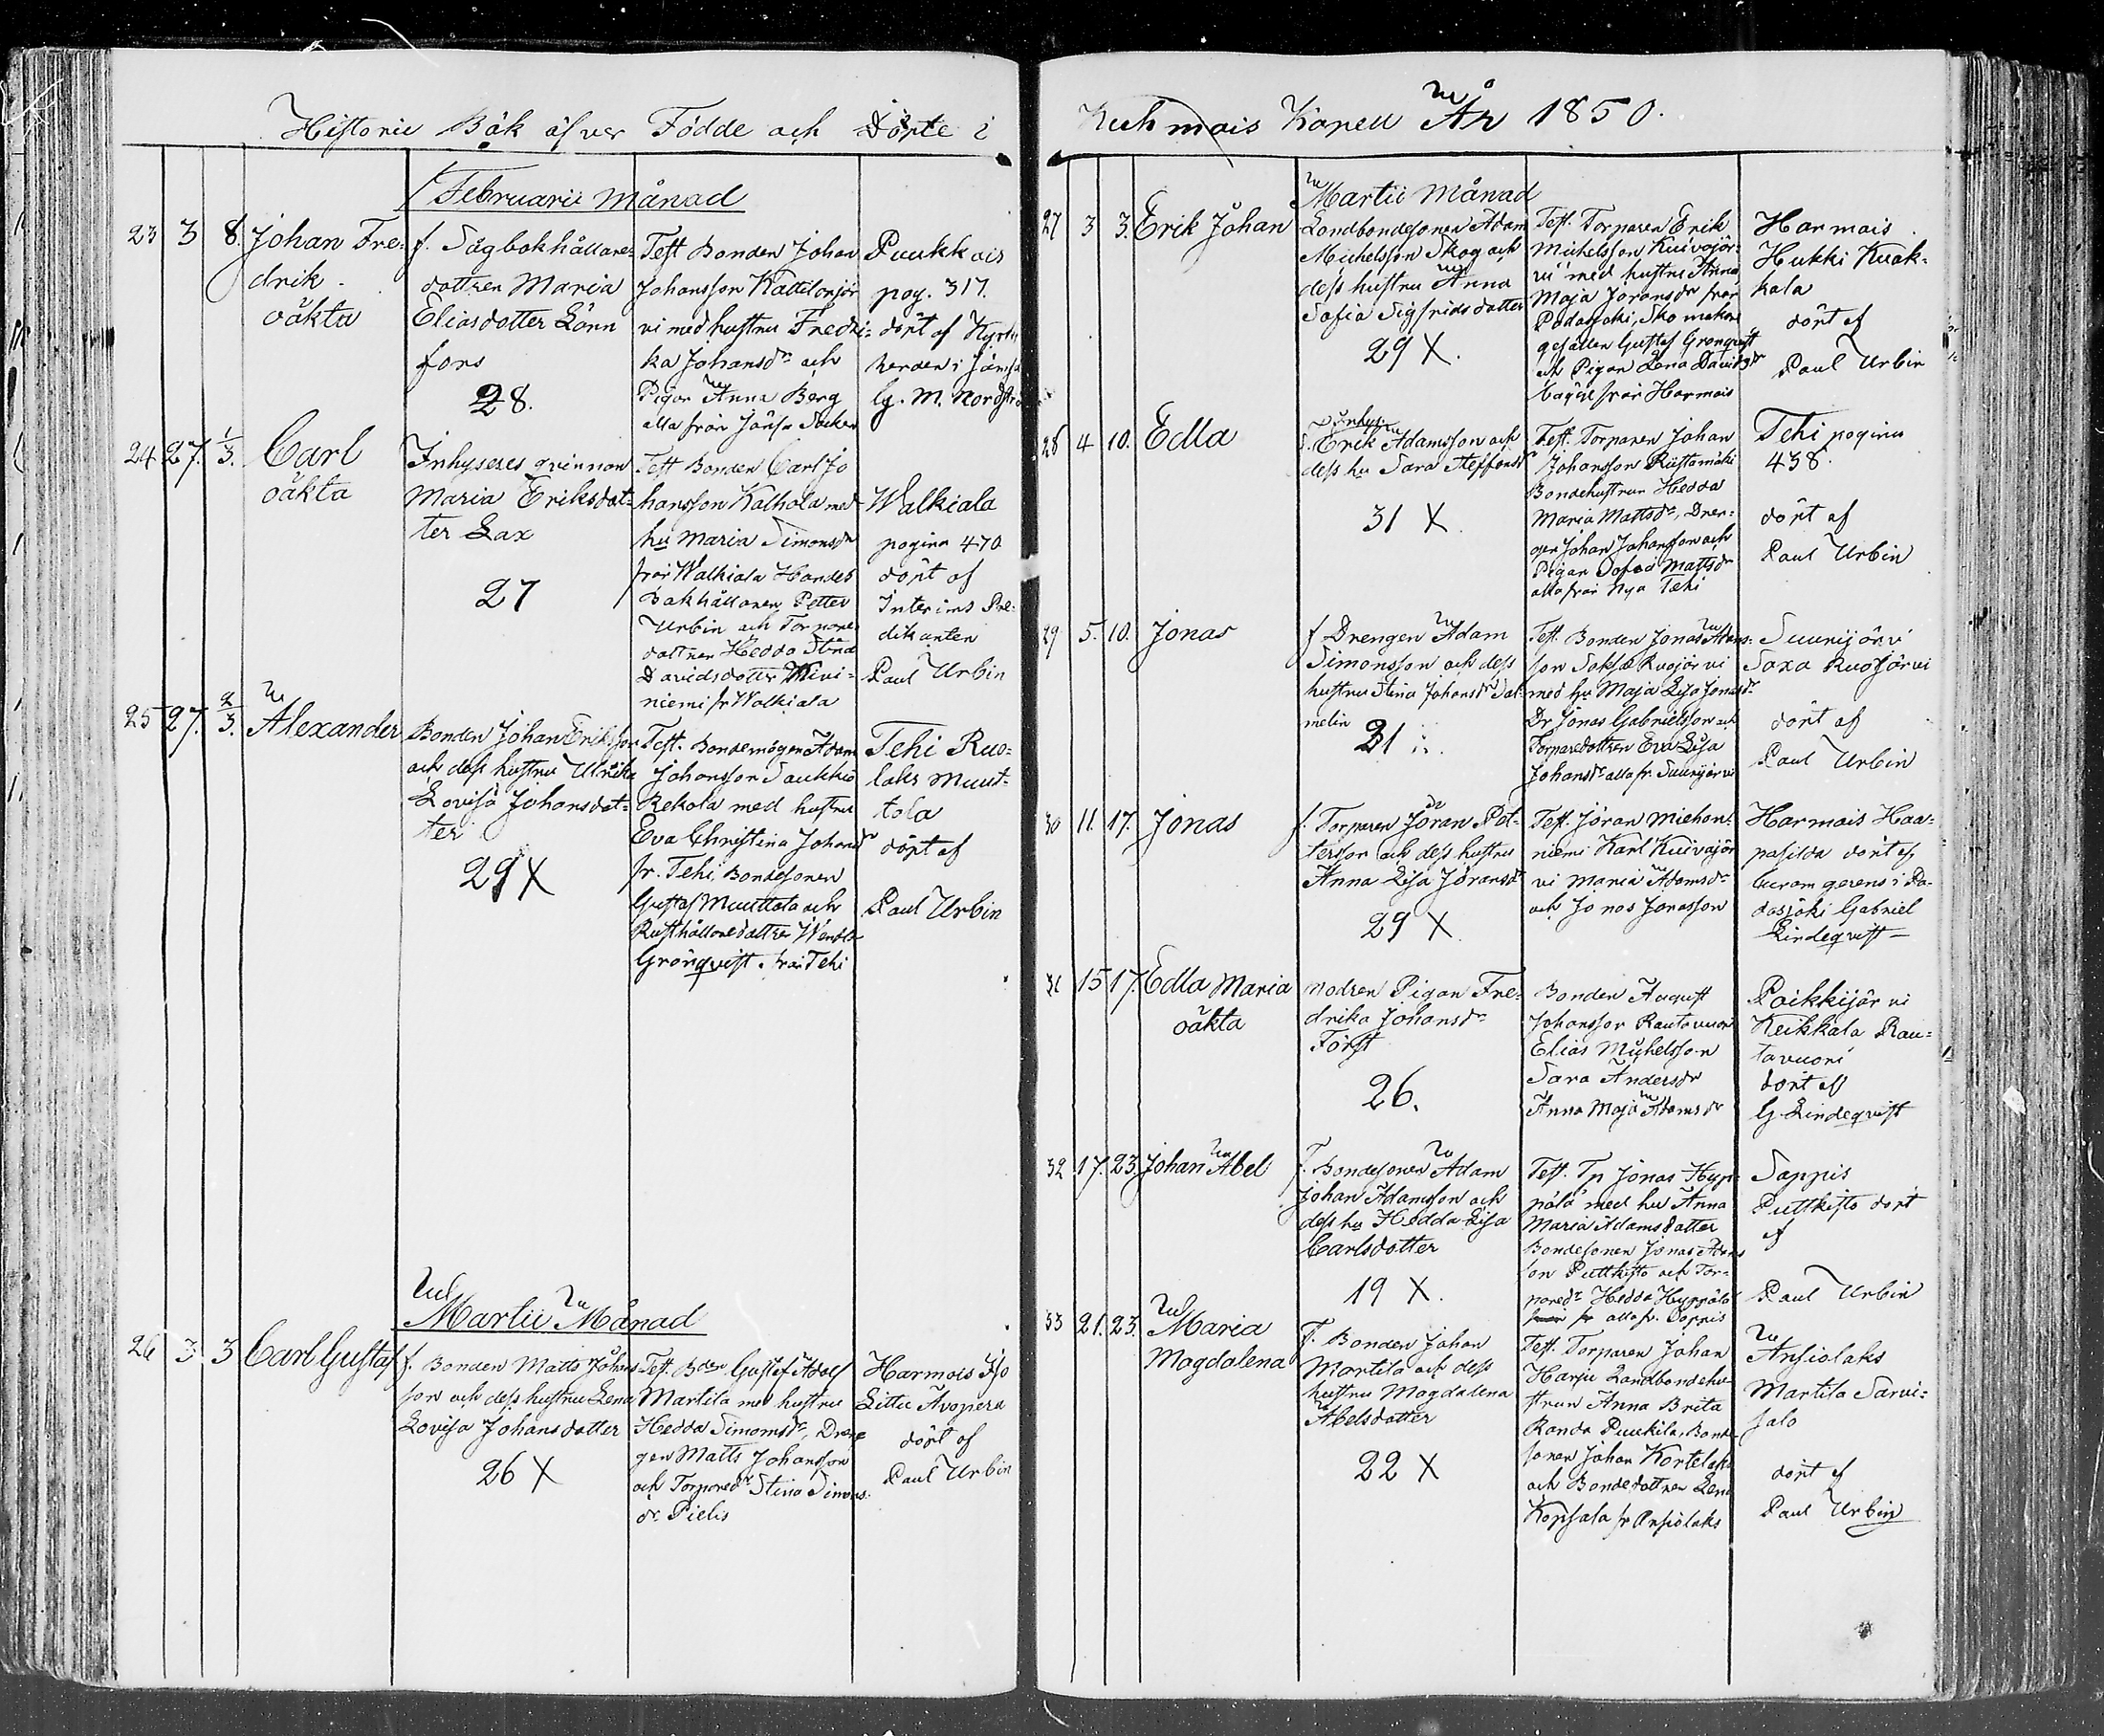 Historie Bok öfver Födde och Döpte i
Kuhmois Kapell År 1850.
Februarii månad
23 3 8. Johan Fre-
drik
oäkta
f. Sågbokhållare-
dottren Maria
Eliasdotter Lönn
fors
28.
Test Bonden Johan
Johansson Kattilanjär
vi med hustru Fredri-
ka Johansdr och
Pigan Anna Berg
alla från Jämsä Socken
Puukkois
pag. 317.
döpt af Kyrko
herden i Jämsä
G. M. Nordström
24 27. 1/3. Carl
oäkta
Inhyseses qvinnan
Maria Eriksdot-
ter Lax
27
Test Bonden Carl Jo
hansson Kalhola med
hu Maria Simonsdr
från Walkiala Handels
Bokhållaren Petter
Urbin och Torpare
dottren Hedda Stina
Davidsdotter Kivi-
niemi fr Walkiala
Walkiala
pagina 470
döpt af
Interims Pre-
dikanten
Paul Urbin
25 27. 2/3. Alexander
Bonden Johan Eriksson
och dess hustru Ulrika
Lovisa Johansdot-
ter
29 X
Test. Bondemågen Adam
Johansson Saukkio
Rekola med hustru
Eva Christina Johansdr
fr. Tehi, Bondesonen
Gustaf Muuttola och
Rusthållaredottren Wendla
Grönqvist. från Tehi
Tehi Ruo-
laks Muut-
tola
döpt af
Paul Urbin
Martii Månad
26 3. 3 Carl Gustaf
f. Bonden Matts Johans
son och dess hustru Lena
Lovisa Johansdotter
26 X
Test. Bden Gustaf Adolf
Martila med hustru
Hedda Simonsdr, Drän
gen Matts Johansson
och Torparedr Stina Simons
dr Pielis
Harmois Iso
Littu Avopera
döpt af
Paul Urbin
Martii Månad
27 3 3. Erik Johan
Landbondesonen Adam
Michelsson Skog och
dess hustru Anna
Sofia Sigfridsdotter
29 X.
Test. Torparen Erik
Michelsson Kuivajär-
vi med hustru Anna
Maja Joransdr från
Padasjoki, Skomakare
gesällen Gustaf Grönqvist
och Pigan Lena Davidsdr
från Harmois
Harmois
Hukki Kuok-
kala
döpt af
Paul Urbin
28 4 10. Edla
Inhys:
f. Erik Adamsson och
dess hu Sara Steffansdr
31 X.
Test. Torparen Johan
Johansson Riistamäki
Bondehustrun Hedda
Maria Mattsdr, Drän-
gen Johan Johansson och
Pigan Sofia Mattsdr
alla från Nya Tehi
Tehi pagina
438.
döpt af
Paul Urbin
29 5. 10. Jonas
f Drengen Adam
Simonsson och dess
hustru Stina Johansdr Sal-
melin
31
Test. Bonden Jonas Adams-
son Saksa Ruojärvi
med hu Maja Lisa Jonasdr
Dr Jonas Gabrielsson och
Torparedottren Eva Lisa
Johansdr alla fr. Suurijärvi
Suurijärvi
Saxa Ruojärvi
döpt af
Paul Urbin
30 11. 17. Jonas
f. Torparen Jöran Pet-
tersson och dess hustru
Anna Lisa Jöransdr
29 X
Test. Jöran Miehon-
niemi Karl Kuivajär
vi Maria Adamsdr
och Jonas Jonasson
Harmois Haa-
pasilda döpt af
Curam gerens i Pa-
dasjoki Gabriel
Lindeqvist
31 15 17. Edla Maria
oäkta
Modren Pigan Fre-
drika Johansdr
Först
26.
Bonden August
Johansson Rautavuori
Elias Michelsson
Sara Andersdr
Anna Maja Adamsdr
Paikkijärvi
Keikkala Rau-
tavuori
döpt af
G. Lindeqvist
32 17. 23. Johan Abel
f. Bondesonen Adam
Johan Adamsson och
dess hu Hedda Lisa
Carlsdotter
19 X.
Test. Tp Jonas Hyp-
pölä med hu Anna
Maria Adamsdotter
Bondesonen Jonas Adams
son Puttkisto och Tor-
paredr Hedda Hyppölä
fr alla fr. Sappis
Sappis
Puttkisto döpt
af
Paul Urbin
33 21. 23. Maria
Magdalena
f. Bonden Johan
Martila och dess
hustru Magdalena
Abelsdotter
22 X
Test. Torparen Johan
Harju Landbondehu-
strun Anna Brita
Randa Puukila, Bonde-
sonen Johan Kortelaks
och Bondedottren Lena
Kopsala fr Ansiolaks
Ansiolaks
Martila Sarvi-
salo
döpt af
Paul Urbin